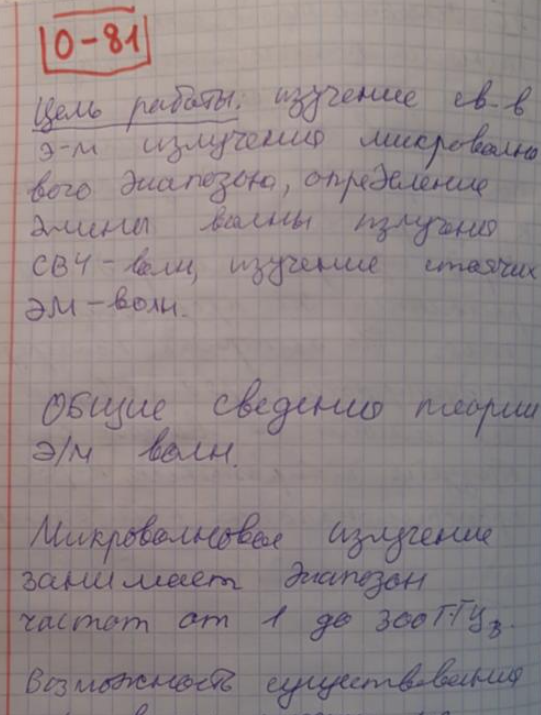 О-81
Цель работы: изучение св-в
э-м излучения микроволно
вого диапазона, определение
длины волны излучения
СВЧ-волн, изучение стоячих
ЭМ-волн.
Общие сведения теории
Э/М волн.
Микроволновое излучение
занимает диапазон
частот от 1 до 300 ГГц
Возможность существования